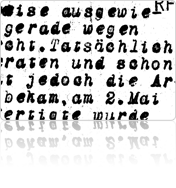 eise ausgewie RF
gerade wegen
cht.Tatsächlich
raten und schon
t jedoch die Ar
bekam,am 2.Mai
ertigte wurde